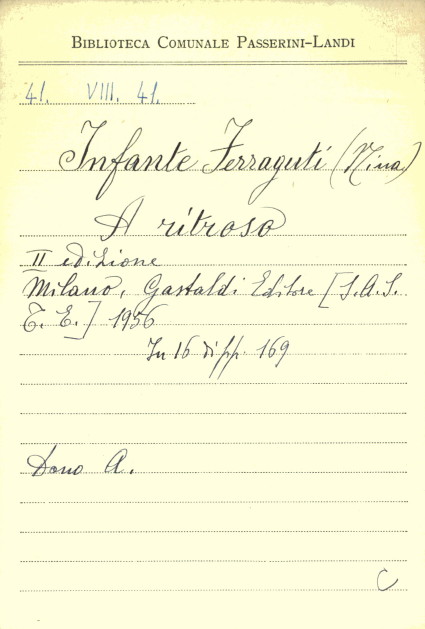 BIBLIOTECA COMUNALE PASSERINI-LANDI
41. VIII. 41.
Infante Ferraguti (Nina)
A ritroso
II edizione
Milano, Gastaldi Editore [S.A.S.
T. E.] 1956
In 16 di pp. 169
Dono A.
C